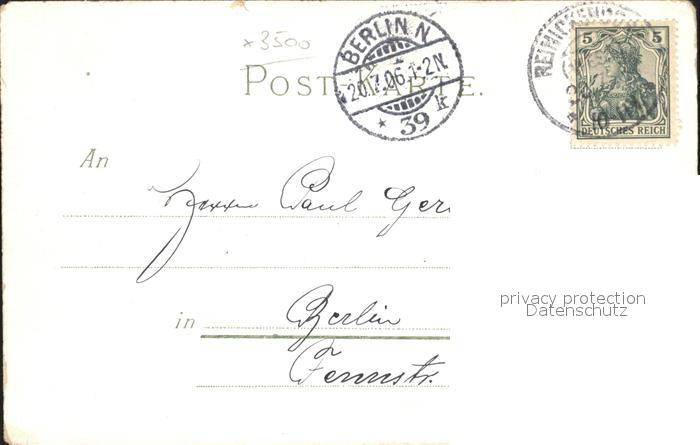 *3500
BERLIN N
20.7.06.1-2N.
* 39 k
POSTKARTE.
5 5
DEUTSCHES REICH
An
Herrn Paul Ger
in Berlin
Fennstr.
privacy protection
Datenschutz